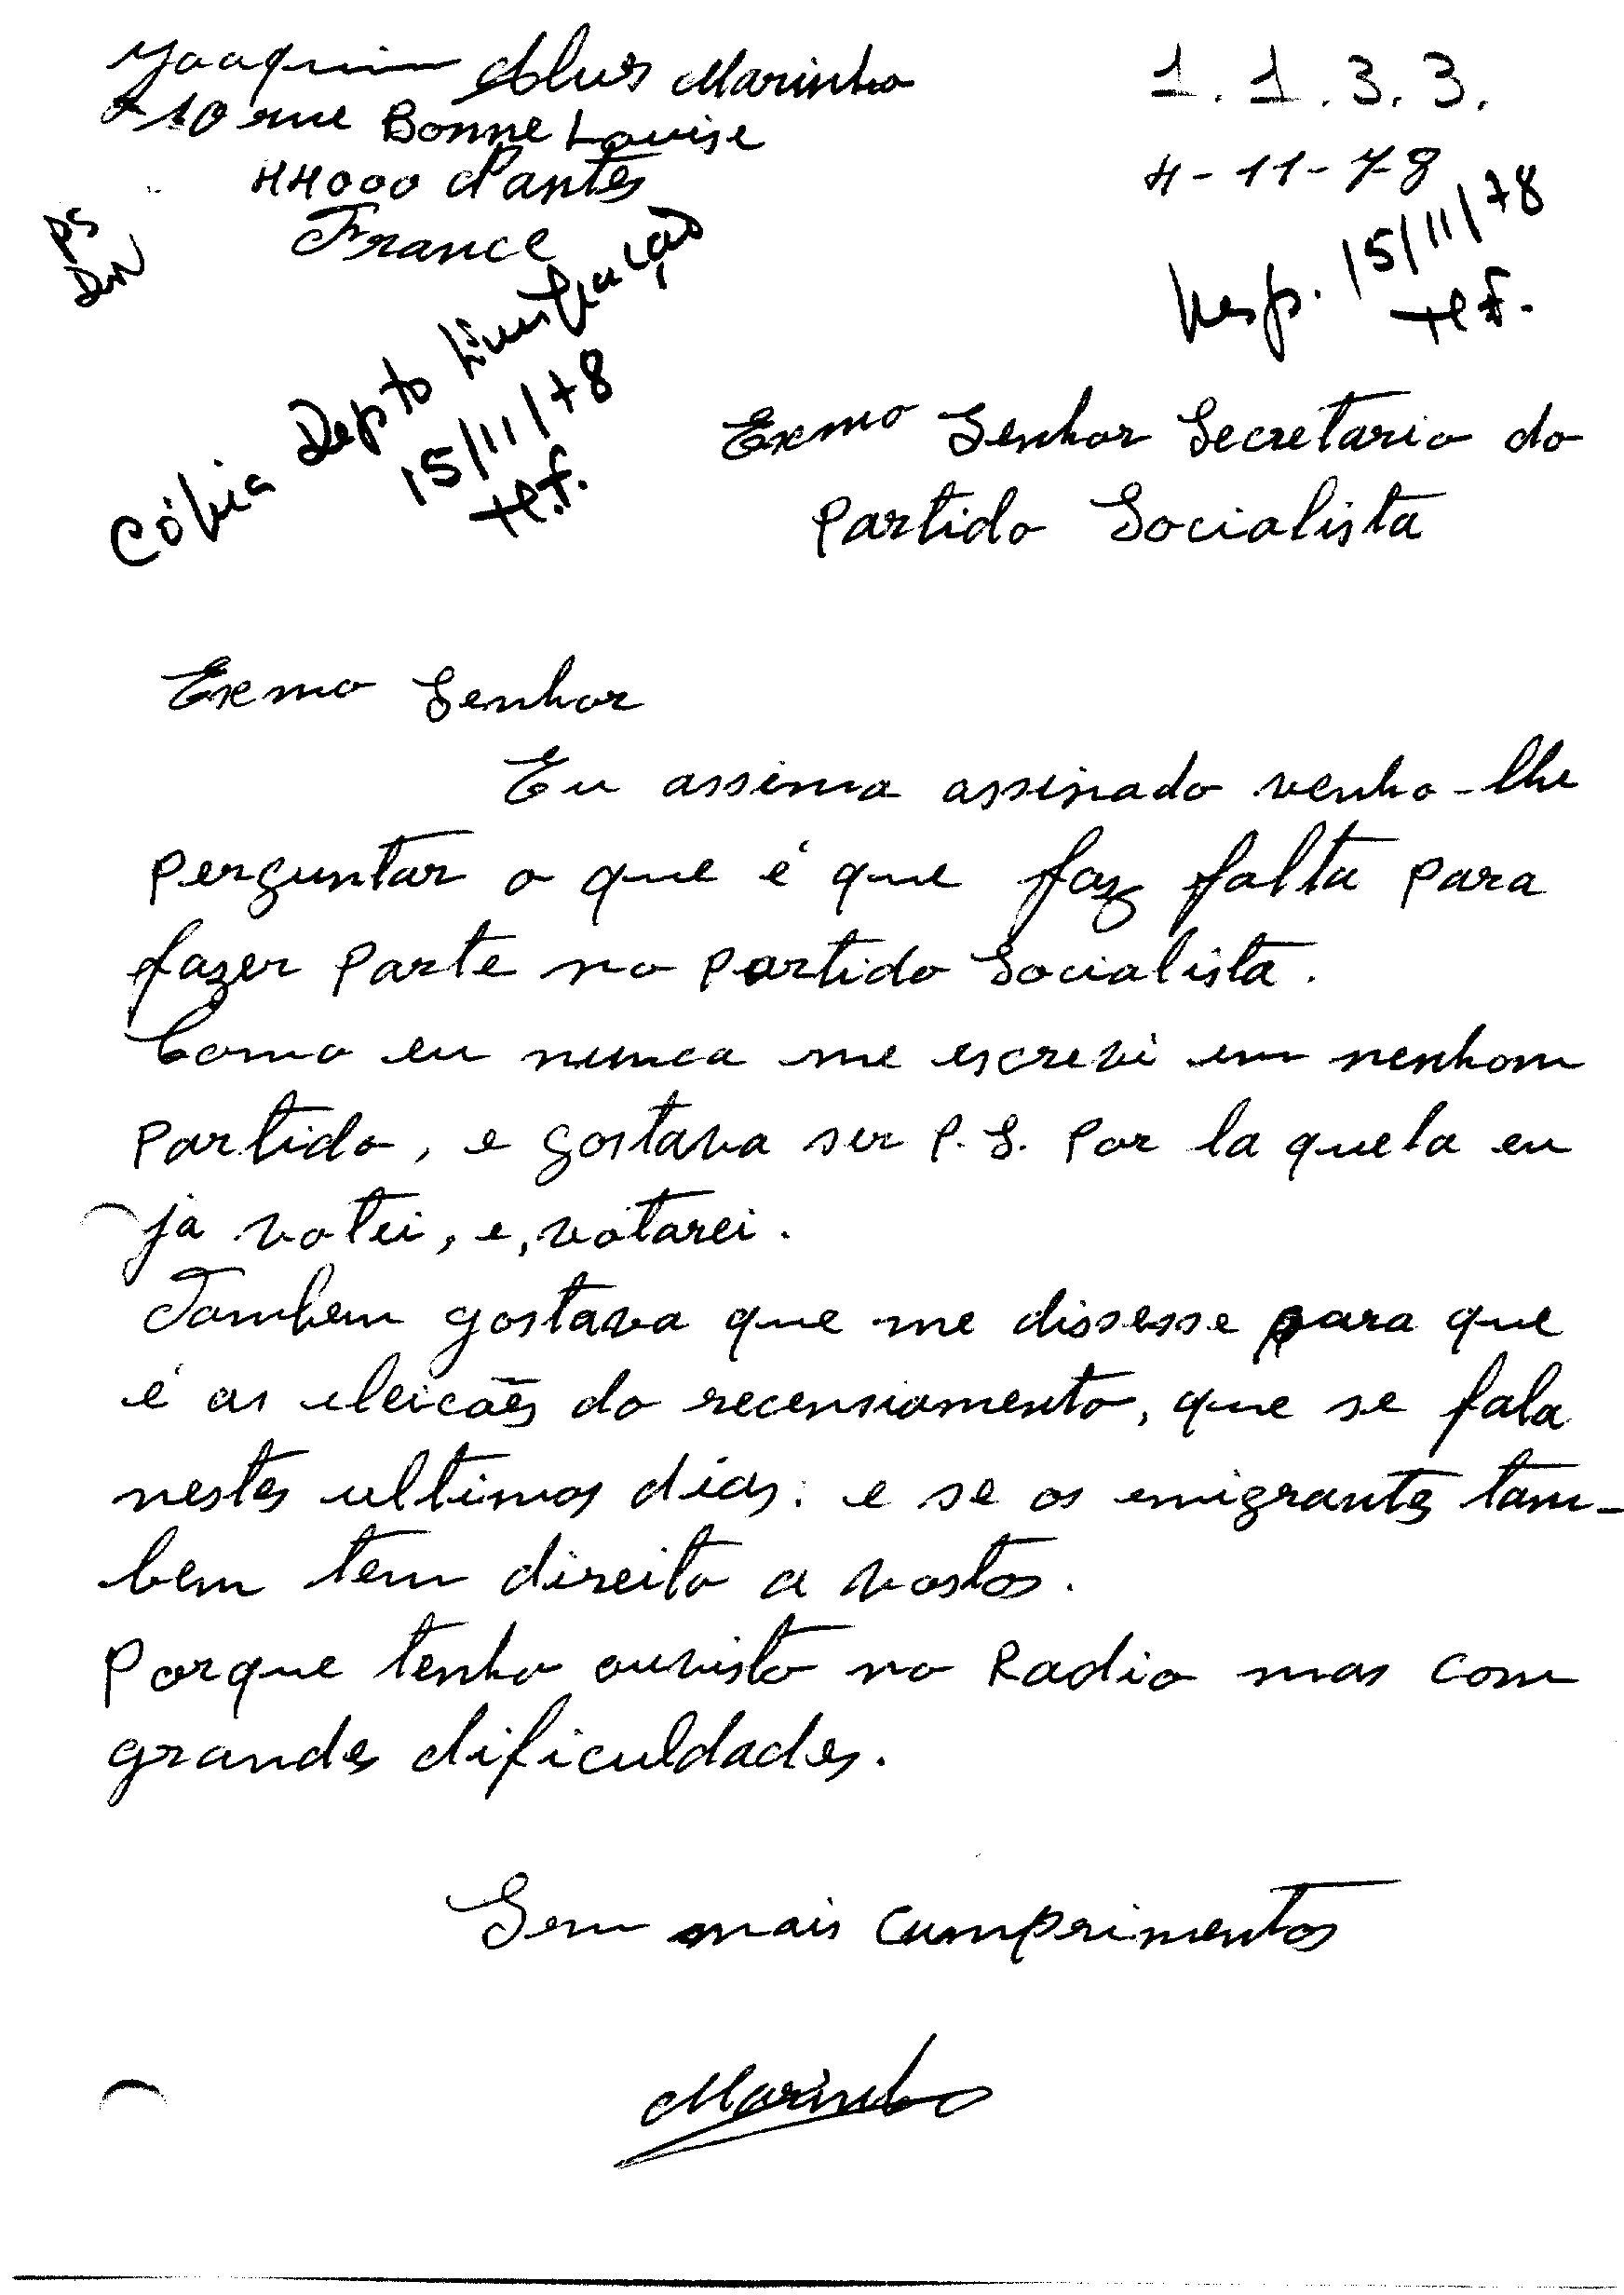 Joaquim Alves Marinho
10 rue Bonne Louise
44000 Nantes
France
1. 1. 3. 3.
4-11-78
PS
Resp. 15/11/78
H.F.
Cópia Depto Emigração
15/11/78
H.F.
Exmo Senhor Secretario do
Partido Socialista
Exmo Senhor
Eu assima assinado venho-lhe
perguntar o que é que faz falta para
fazer parte no partido Socialista.
Como eu nunca me escrevi em nenhom
partido, e gostava ser P.S. Por la quela eu
já votei, e, votarei.
Tambem gostava que me dissesse para que
é as eleicões do recensiamento, que se fala
nestes ultimos dias. e se os emigrantes tam-
bem tem direito a vostos.
Porque tenho ouvisto no Radio mas com
grandes dificuldades.
Sem mais cumprimentos
Marinho